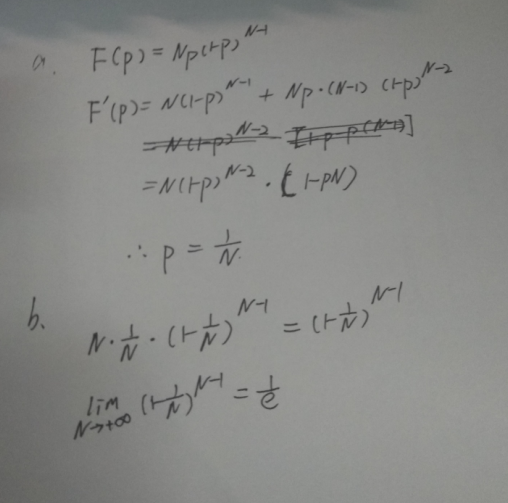 a. F(p) = Np(1-p)^{N-1}
F'(p) = N(1-p)^{N-1} + Np·(N-1) (1-p)^{N-2}
= N(1-p)^{N-2} [1-p-p(N-1)]
= N(1-p)^{N-2} · (1-pN)
∴ p = 1/N
b. N · 1/N · (1-1/N)^{N-1} = (1-1/N)^{N-1}
lim N→+∞ (1-1/N)^{N-1} = 1/e